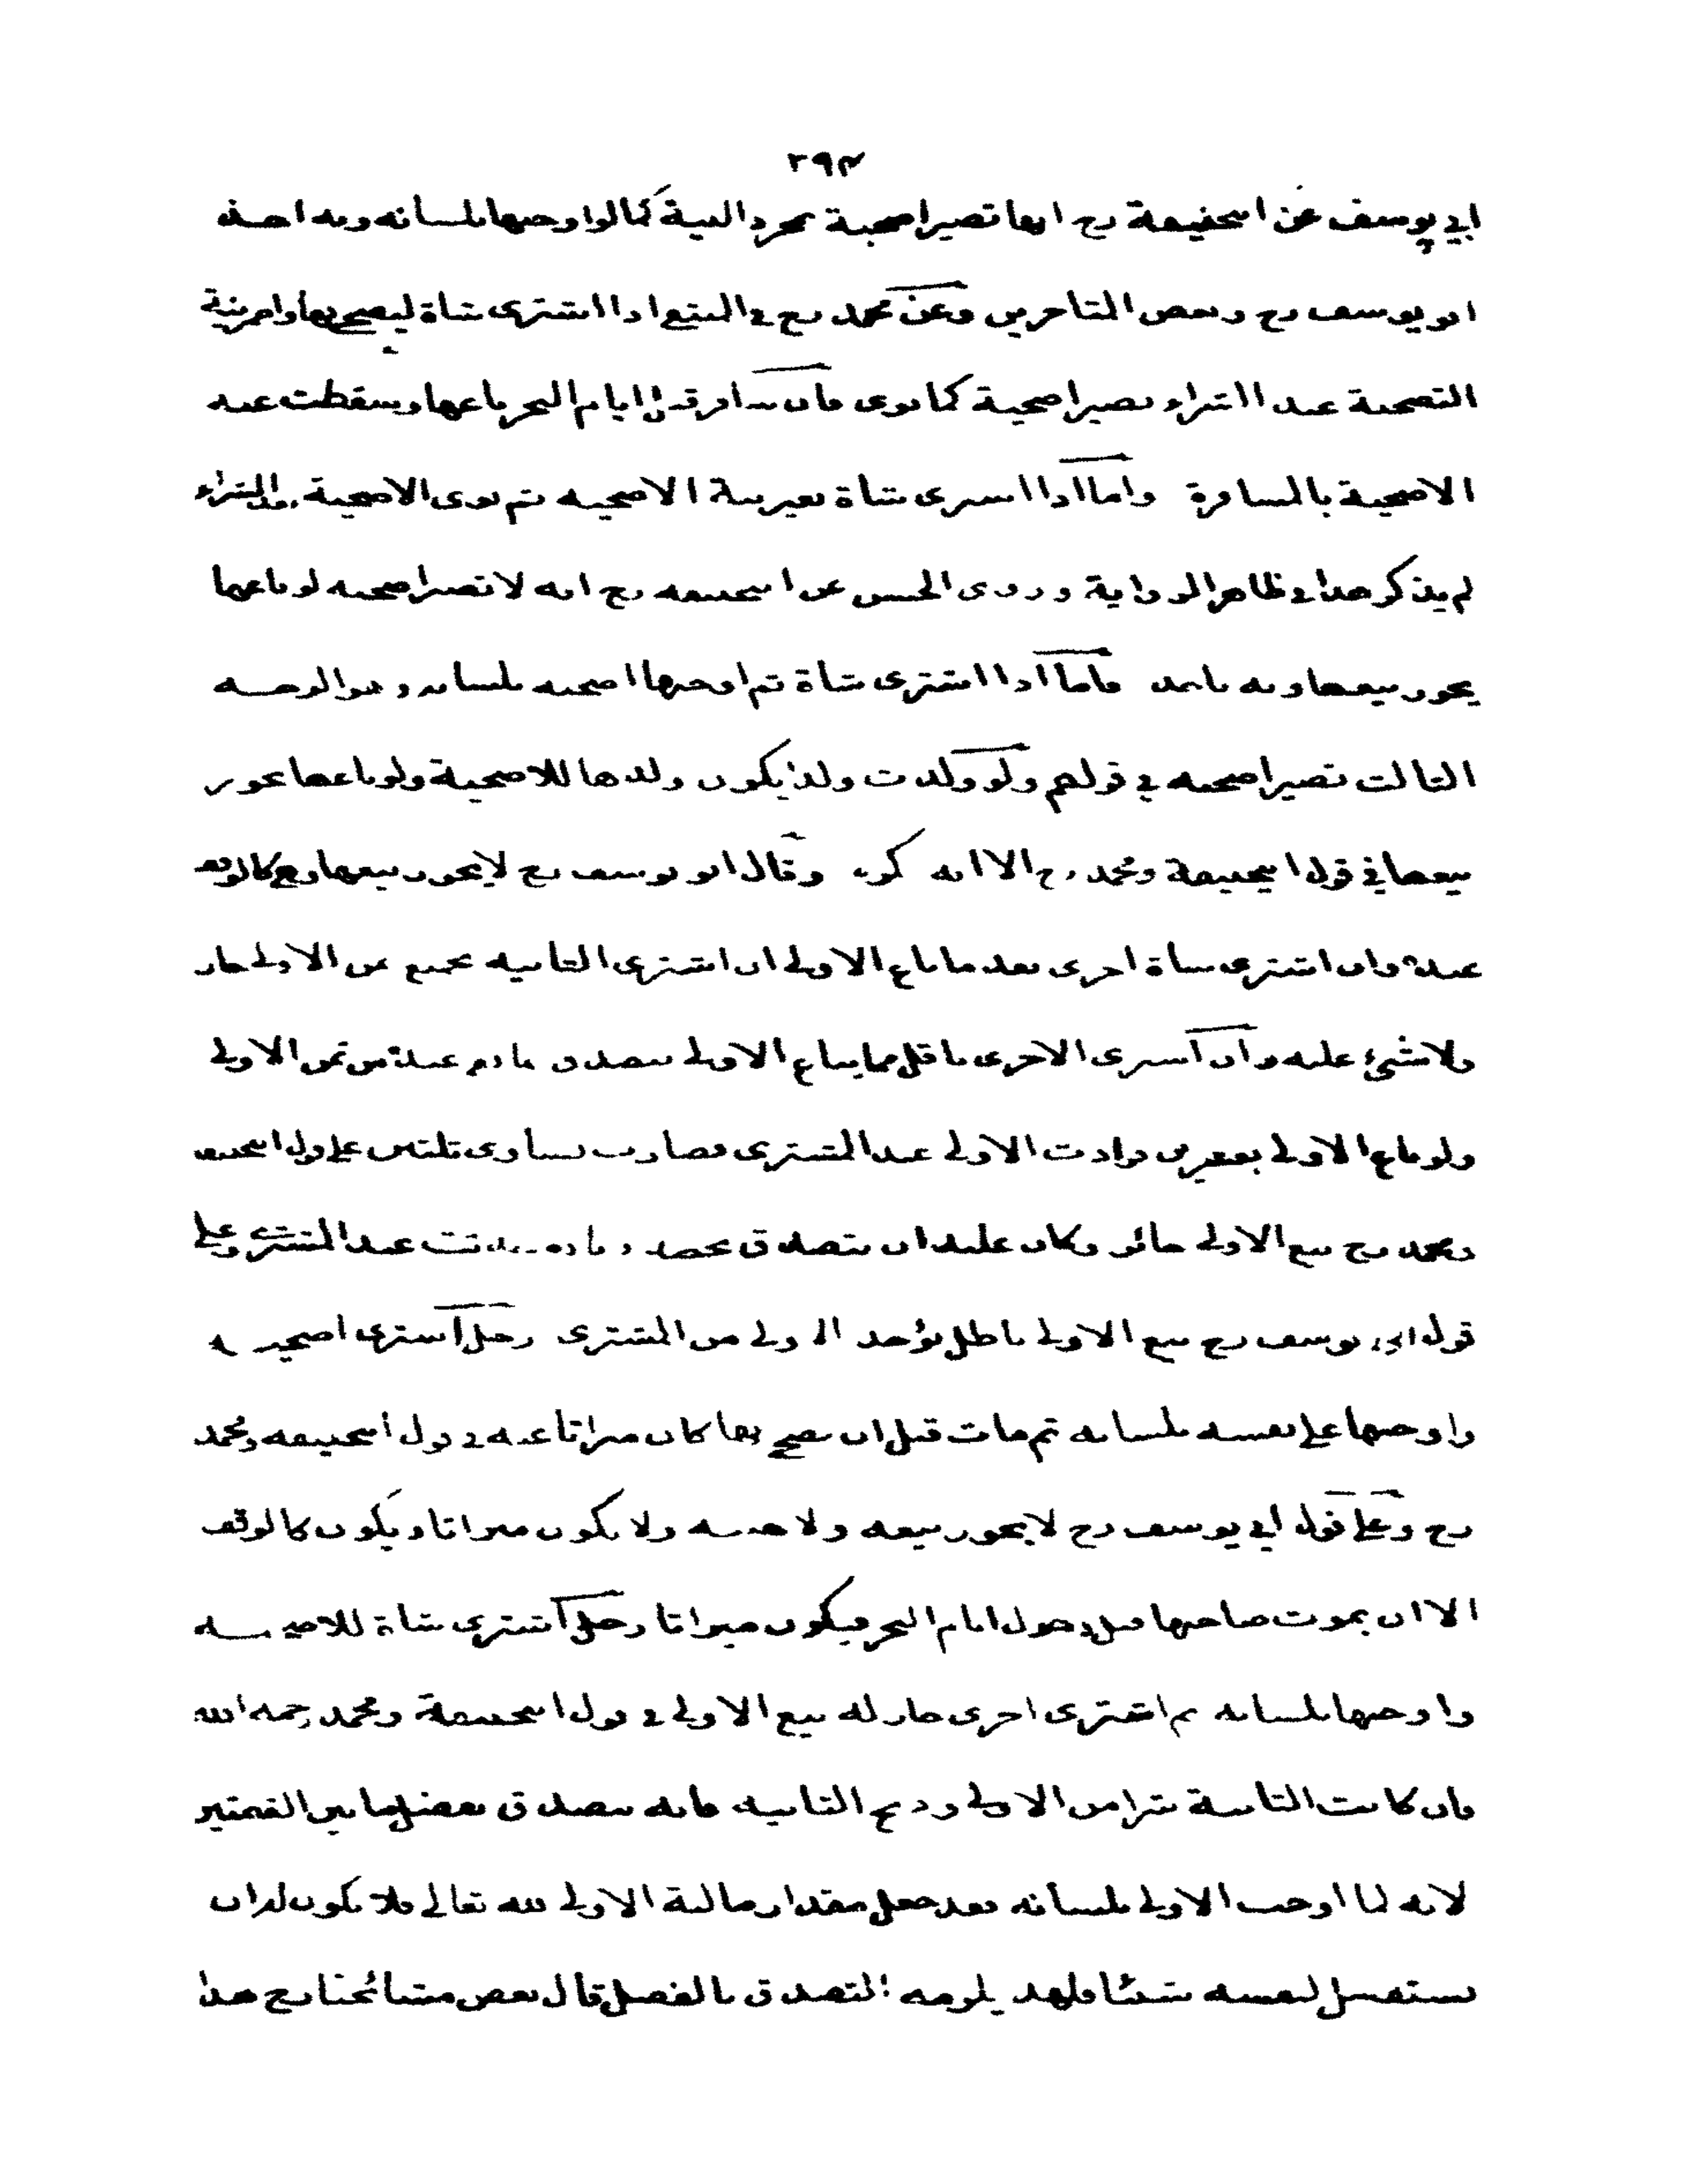 ٢٩٣
ابي يوسف عن ابيحنيفة رح انها تصير اضحية بمجرد النية كما لو اوجبها بلسانه وبه اخذ
ابو يوسف رح وبعض المتاخرين وعن محمد رح في المنتقى اذا اشترى شاة ليضحي بها واضمر نية
التضحية عند الشراء تصير اضحية كما نوى فان سافر قبل ايام النحر باعها وسقطت عنه
الاضحية بالمسافرة واما اذا اشترى شاة بغير نية الاضحية ثم نوى الاضحية بعد الشراء
لم يذكر هذا في ظاهر الرواية وروى الحسن عن ابيحنيفة رح انه لا تصير اضحية لو باعها
يجوز بيعها وبه ناخذ فاما اذا اشترى شاة ثم اوجبها اضحية بلسانه وهو الوجه
الثالث تصير اضحية في قولهم ولو ولدت ولدا يكون ولدها للاضحية ولو باعها يجوز
بيعها في قول ابيحنيفة ومحمد رح الا انه يكره وقال ابو يوسف رح لا يجوز بيعها وهي كالوقف
عنده وان اشترى شاة اخرى بعد ما باع الاولى ان اشترى الثانية بجميع ثمن الاولى جاز
ولا شيء عليه وان اشترى الاخرى باقل مما باع الاولى يتصدق بما دم عنده من ثمن الاولى
ولو باع الاولى بعشرين فزادت الاولى عند المشتري فصارت تساوى ثلثين على قول ابيحنيفة
ومحمد رح بيع الاولى جائز وكان عليه ان يتصدق بحصة زيادة حدثت عند المشتري وعلى
قول ابي يوسف رح بيع الاولى باطل يؤخذ الاولى من المشترى رجل اشترى اضحية
واوجبها على نفسه بلسانه ثم مات قبل ان يضحي بها كان ميراثا عنه في قول ابيحنيفة ومحمد
رح وعلى قول ابي يوسف رح لا يجوز بيعه ولا هبته ولا يكون ميراثا ويكون كالوقف
الا ان يموت صاحبها قبل دخول ايام النحر فيكون ميراثا رجل اشترى شاة للاضحية
واوجبها بلسانه ثم اشترى اخرى جاز له بيع الاولى في قول ابيحنيفة ومحمد رحمه الله
فان كانت الثانية شرا من الاولى وذبح الثانية فانه يتصدق بفضل ما بين القيمتين
لانه لما اوجب الاولى بلسانه فقد جعل مقدار مالية الاولى لله تعالى فلا يكون له ان
يستفضل لنفسه شيئا فلهذا يلزمه التصدق بالفضل قال بعض مشائخنا رح هذا